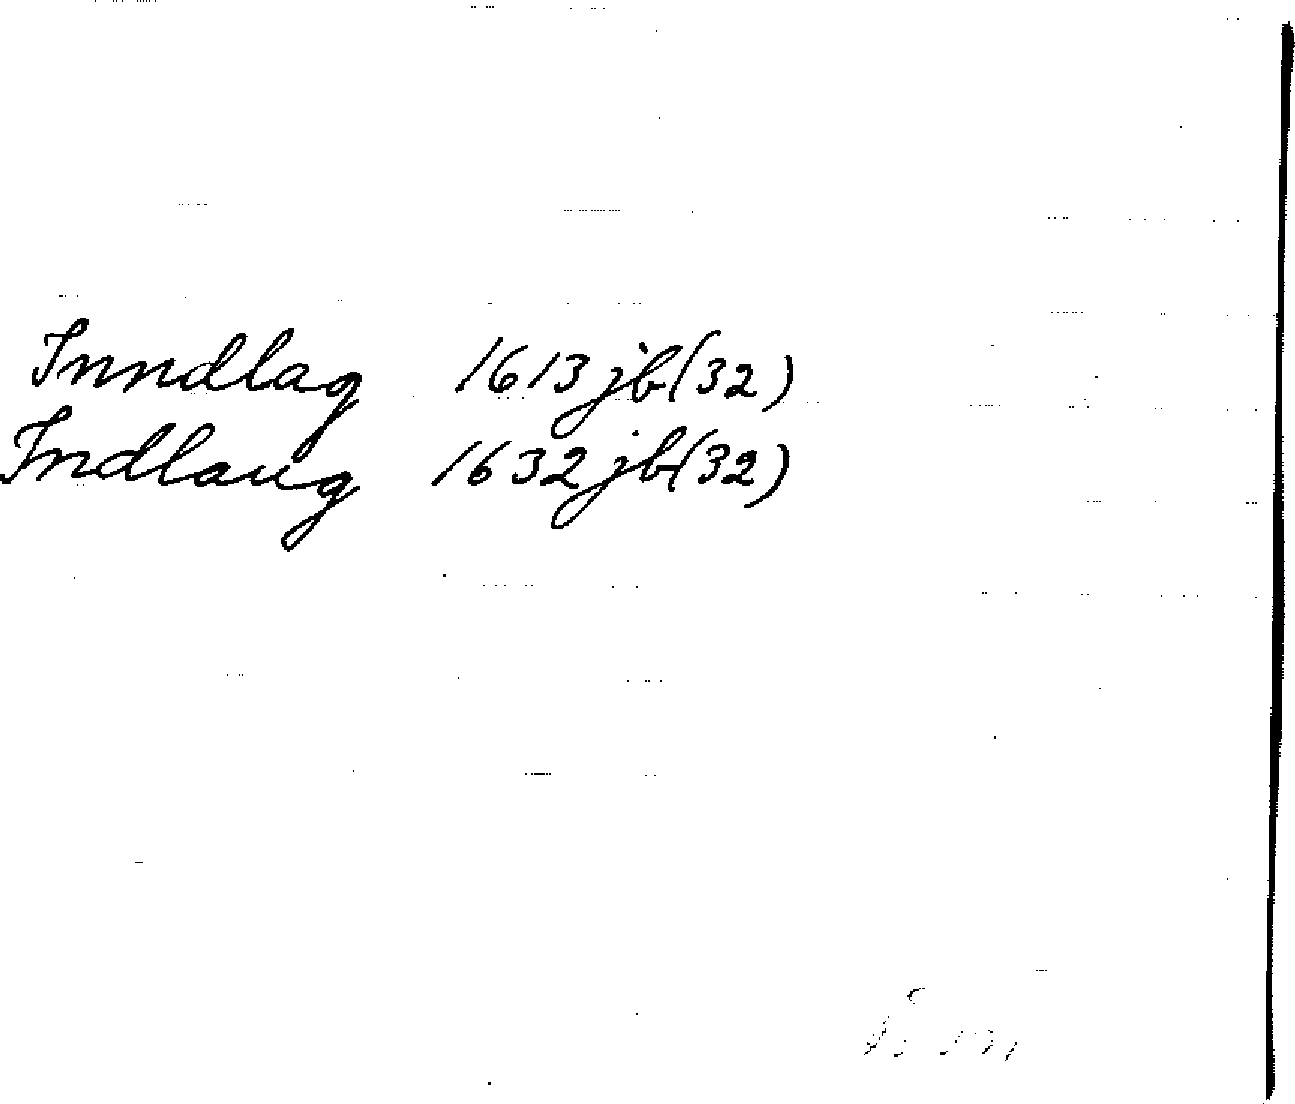 Inndlag 1613 jb (32)
Indlaug 1632 jb (32)